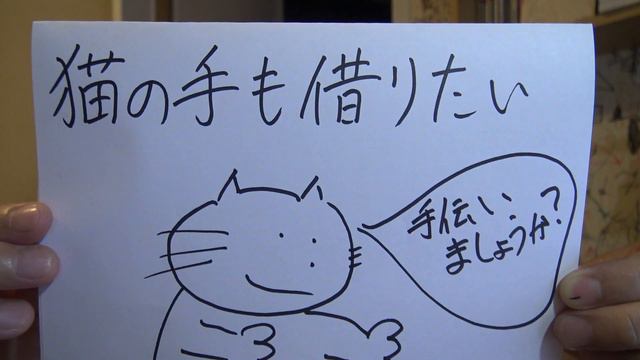 猫の手も借りたい
手伝い
ましょうか?